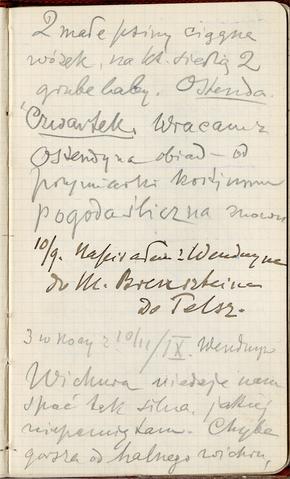 2 małe psiny ciągną
wózek, na kt. siedzą 2
grube baby. Ostenda.
Czwartek. Wracam z
Ostendy na obiad – od
pogoda śliczna znowu
10/9. Napisałam z Wenduyne
do M. Brensztejna
do Telsz.
3 w nocy z 10/11/IX. Wenduyne
Wichura nie daje nam
spać tak silna, jakiej
nie pamiętam. Chyba
gorsza od halnego wichru,